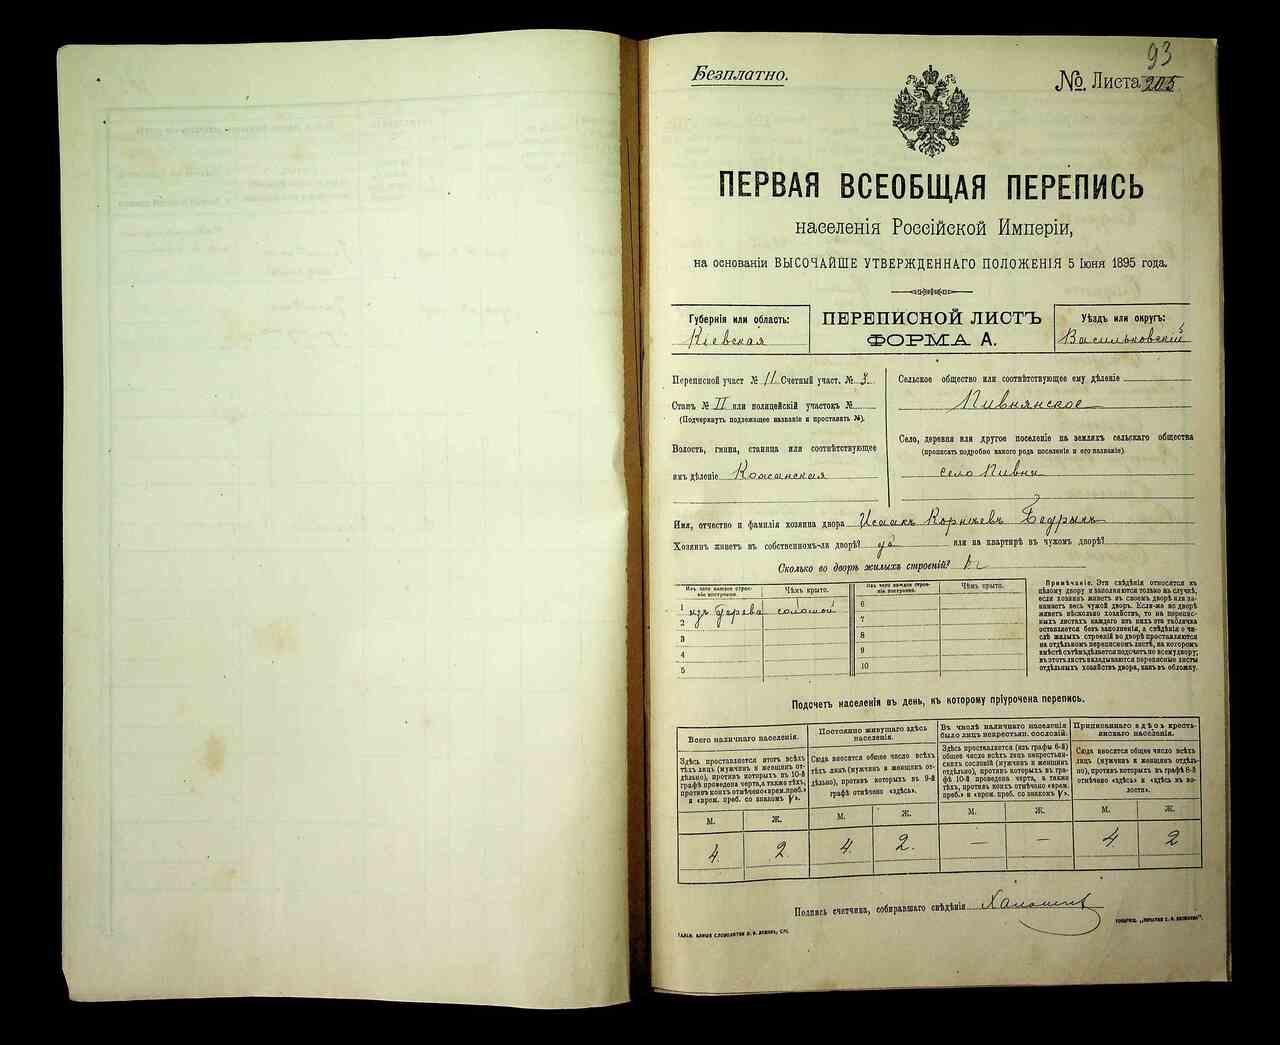 93
Безплатно.
№ Листа 205
ПЕРВАЯ ВСЕОБЩАЯ ПЕРЕПИСЬ
населенія Россійской Имперіи,
на основаніи ВЫСОЧАЙШЕ УТВЕРЖДЕННАГО ПОЛОЖЕНІЯ 5 Іюня 1895 года.
Губернія или область:
Кіевская
ПЕРЕПИСНОЙ ЛИСТЪ
ФОРМА А.
Уѣздъ или округъ:
Васильковскій
Переписной участ № 11 Счетный участ. № 3.
Станъ № II или полицейскій участокъ №
(Подчеркнуть подлежащее названіе и проставить №).
Волость, гмина, станица или соотвѣтствующее
имъ дѣленіе Кожанская
Сельское общество или соотвѣтствующее ему дѣленіе
Пивнянское
Село, деревня или другое поселеніе на земляхъ сельскаго общества
(прописать подробно какого рода поселеніе и его названіе)
село Пивни
Имя, отчество и фамилія хозяина двора Исаакъ Корнѣевъ Бедрыкъ
Хозяинъ живетъ въ собственномъ-ли дворѣ? да или на квартирѣ въ чужомъ дворѣ?
Сколько во дворѣ жилыхъ строеній?
Изъ чего каждое строеніе построено.
Чѣмъ крыто.
1 изъ дерева соломой
2
3
4
5
Изъ чего каждое строеніе построено.
Чѣмъ крыто.
6
7
8
9
10
Примѣчаніе. Эти свѣдѣнія относятся къ
цѣлому двору и заполняются только въ случаѣ,
если хозяинъ живетъ въ своемъ дворѣ или за-
нимаетъ весь чужой дворъ. Если-же во дворѣ
живетъ нѣсколько хозяйствъ, то на перепис-
ныхъ листахъ каждаго изъ нихъ эта табличка
оставляется безъ заполненія, а свѣдѣнія о чи-
слѣ жилыхъ строеній во дворѣ проставляются
на отдѣльномъ переписномъ листѣ, на которомъ
вмѣстѣ съ тѣмъ дѣлается подсчетъ по всему двору;
въ этотъ листъ вкладываются переписные листы
отдѣльныхъ хозяйствъ двора, какъ въ обложку.
Подсчетъ населенія въ день, къ которому пріурочена перепись.
Всего наличнаго населенія.
Здѣсь проставляется итогъ всѣхъ
тѣхъ лицъ (мужчинъ и женщинъ от-
дѣльно), противъ которыхъ въ 10-й
графѣ проведена черта, а также тѣхъ,
противъ коихъ отмѣчено «врем. преб.»
и «врем. преб. со знакомъ V».
М. Ж.
4. 2.
Постоянно живущаго здѣсь
населенія.
Сюда вносится общее число всѣхъ
тѣхъ лицъ (мужчинъ и женщинъ от-
дѣльно), противъ которыхъ въ 9-й
графѣ отмѣчено «здѣсь».
М. Ж.
4. 2.
Въ числѣ наличнаго населенія
было лицъ некрестьян. сословій.
Здѣсь проставляется (изъ графы 6-й)
общее число всѣхъ лицъ некрестьян-
скихъ сословій (мужчинъ и женщинъ
отдѣльно), противъ которыхъ въ гра-
фѣ 10-й проведена черта, а также
тѣхъ, противъ коихъ отмѣчено «врем.
преб.» и «врем. преб. со знаком V».
М. Ж.
— —
Приписаннаго здѣсь кресть-
янскаго населенія.
Сюда вносится общее число всѣхъ
лицъ (мужчинъ и женщинъ отдѣль-
но), противъ которыхъ въ графѣ 8-й
отмѣчено «здѣсь» и «здѣсь въ во-
лости».
М. Ж.
4 2
Подпись счетчика, собиравшаго свѣдѣнія